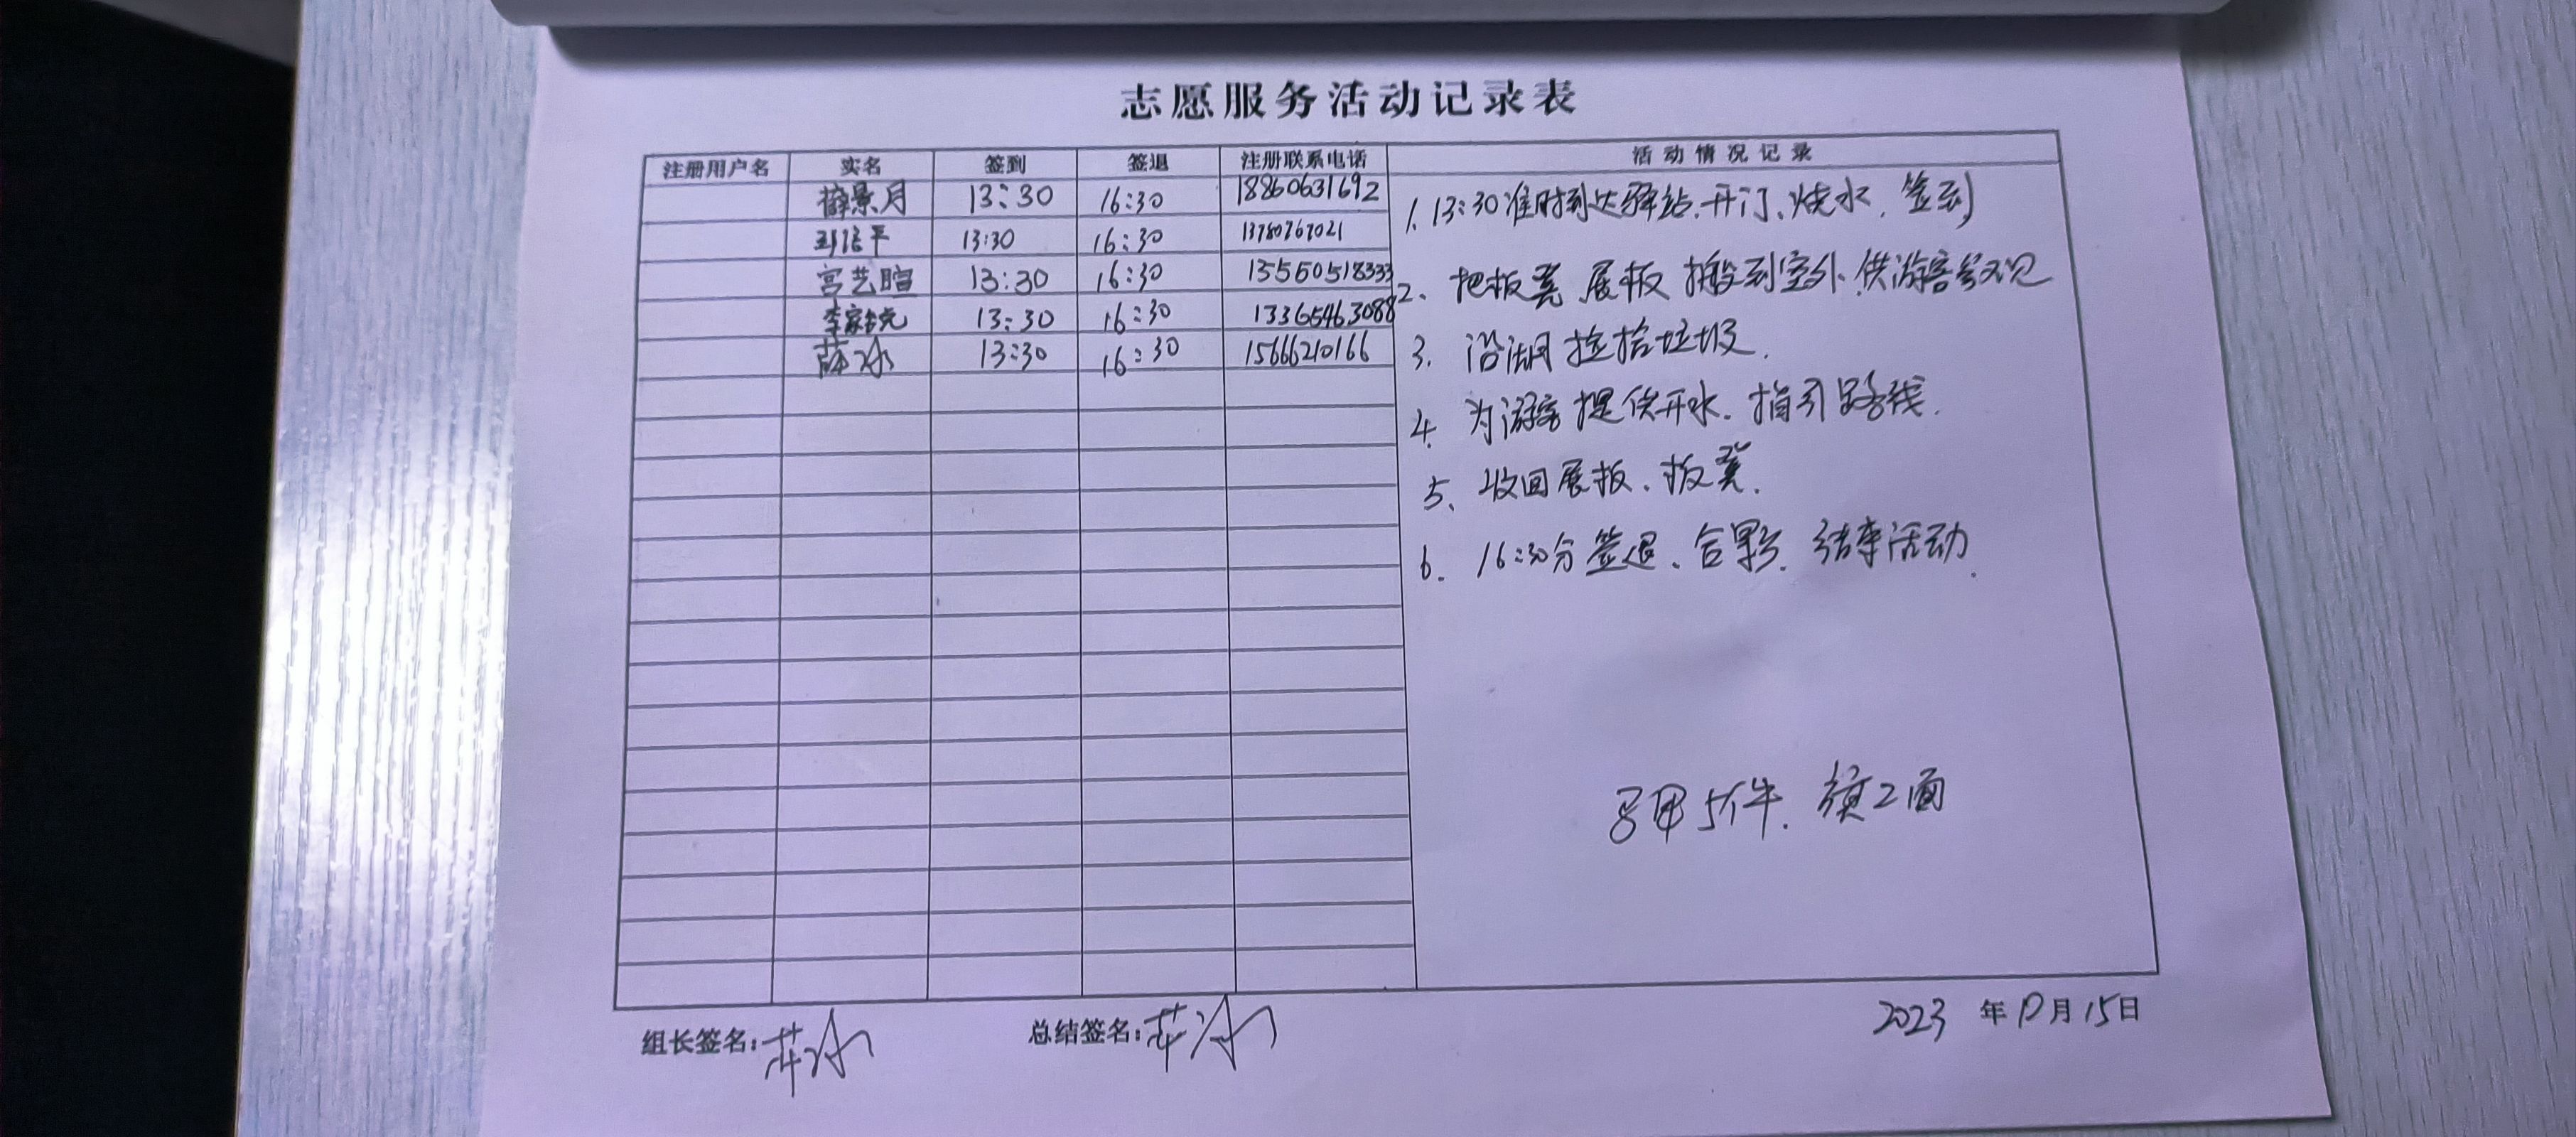 志愿服务活动记录表
注册用户名 实名 签到 签退 注册联系电话 活动情况记录
薛景月 13:30 16:30 18860631692
13:30 16:30 13780767021
宫艺暄 13:30 16:30 15550518333
李家锐 13:30 16:30 13365463088
薛冰 13:30 16:30 15666210166
1. 13:30准时到达驿站、开门、烧水、签到
2、把板凳、展板搬到室外、供游客参观
3、沿湖捡拾垃圾.
4、为游客提供开水、指引路线.
5、收回展板、板凳.
6、16:30分签退、合影、结束活动.
马甲5件、旗2面
组长签名:薛冰 总结签名:薛冰 2023 年12月15日